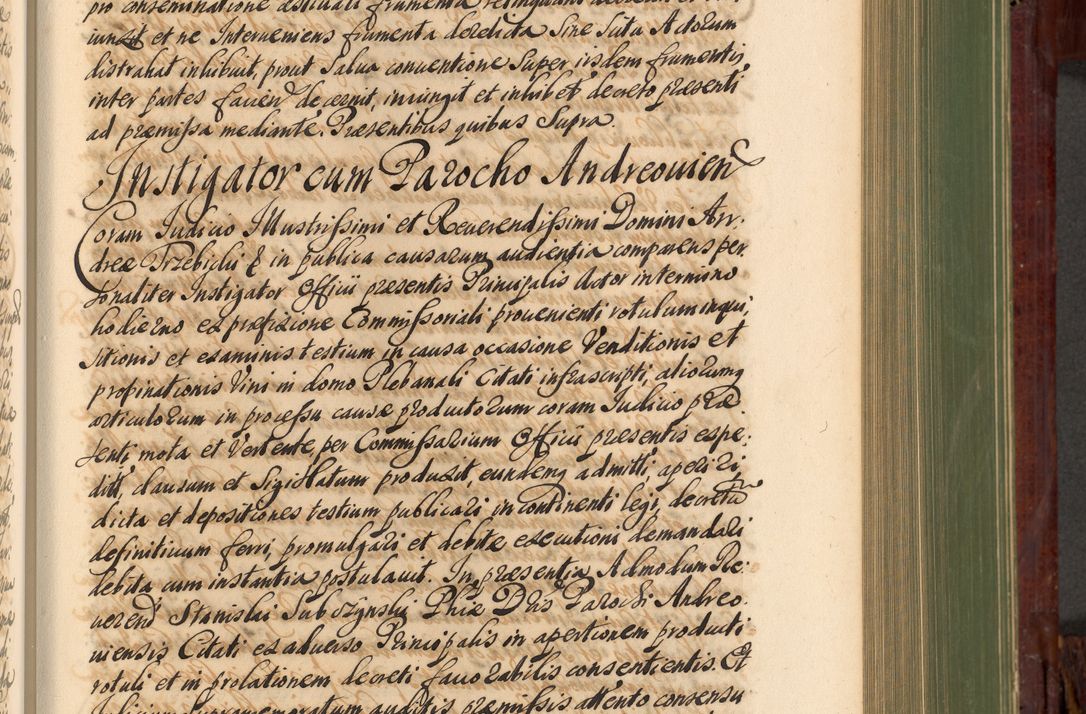 pro conseminatione aestivali frumenta relinquant
iunxit et ne Interveniens frumenta derelicta Sine Scitu Actorum
distrahat inhibuit, prout Salva conventione Super iisdem frumentis
inter partes faciend decernit, iniungit et inhibet decreto praesenti
ad praemissa mediante. Praesentibus quibus Supra.
Instigator cum Parocho Andreovien
Coram Iudicio Illustrissimi et Reverendissimi Domini An-
dreae Trzebicki & in publica causarum audientia comparens per-
sonaliter Instigator Officii praesentis Principalis Actor in termino
hodierno ex praefixione Commissoriali provenienti rotulum inqui,
sitionis et examinis testium in causa occasione Venditionis et
propinationis Vini in domo Plebanali Citati infrascripti, aliorumq
articulorum in processu causae productorum coram Iudicio prae
senti mota et Vertente, per Commissarium Officii praesentis expe-
dit, clausum et Sigillatum produxit, eundemq admitti, aperiri,
dicta et depositiones testium publicari, in continenti legi, decretu
definitivum ferri, promulgari et debitae executioni demandari
debita cum instantia postulavit. In praesentia Admodum Re-
verend Stanislai Sobczynski Phiae Dris Parochi Andreo-
viensis Citati ex adverso Principalis in apertionem producti
rotuli et in prolationem decreti favorabilis consentientis. Et
Iudicium Supramemoratum auditis praemissis attento consensu